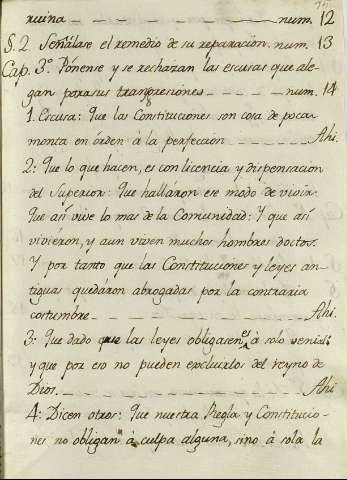 ruina _ _ _ _ _ _ _ _ num. 12
§. 2 Señálase el remedio de su reparacion. num. 13
Cap. 3º. Pónense y se rechazan las escusas que ale-
gan para sus transgresiones _ _ _ _ _ num. 14
1. Escusa: Que las Constituciones son cosa de poca
monta en órden á la perfeccion _ _ _ _ Ahi.
2: Que lo que hacen, es con licencia y dispensacion
del Superior: Que halláron ese modo de vivir:
Que así vive lo mas de la Comunidad: Y que así
viviéron, y aun viven muchos hombres doctos.
Y por tanto que las Constituciones y leyes an-
tiguas quedáron abrogadas por la contraria
costumbre _ _ _ _ _ _ _ _ _ Ahi.
3: Que dado que las leyes obligasen, es á solo venial:
y que por eso no pueden excluirlos del reyno de
Dios. _ _ _ _ _ _ _ _ _ _ Ahi
4: Dicen otros: Que nuestra Regla y Constitucio-
nes no obligan á culpa alguna, sino á sola la